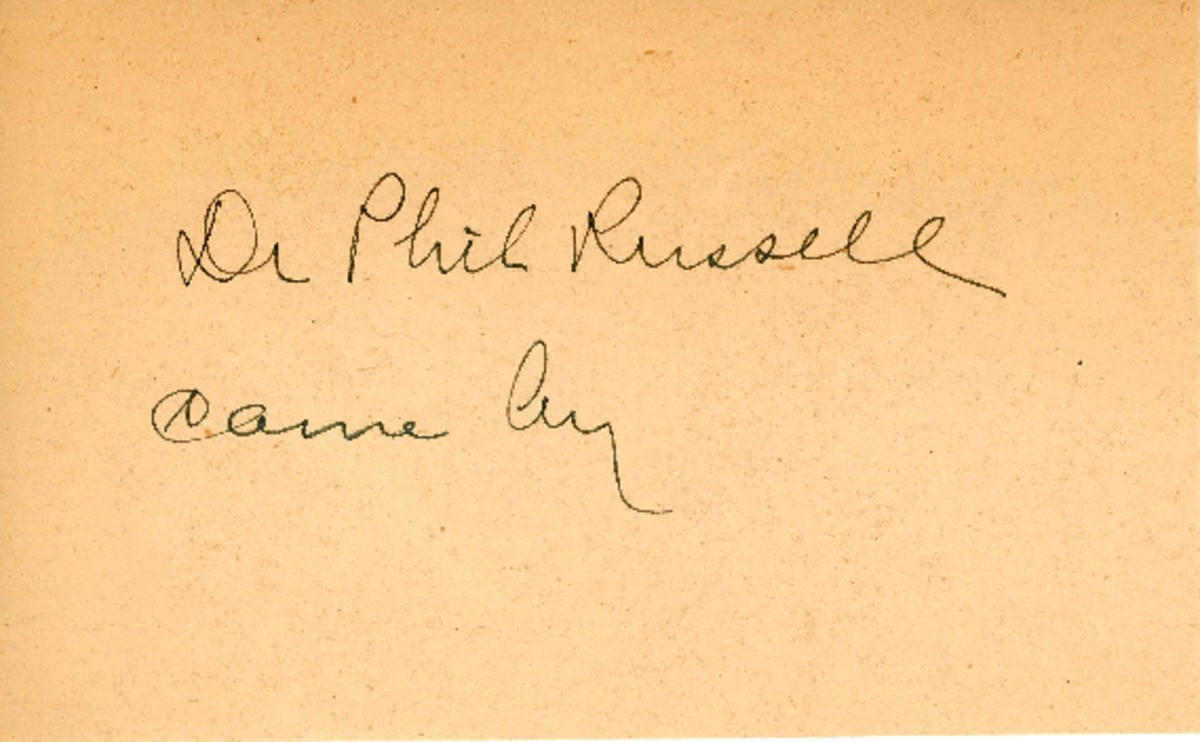 Dr Phil Russell
came by